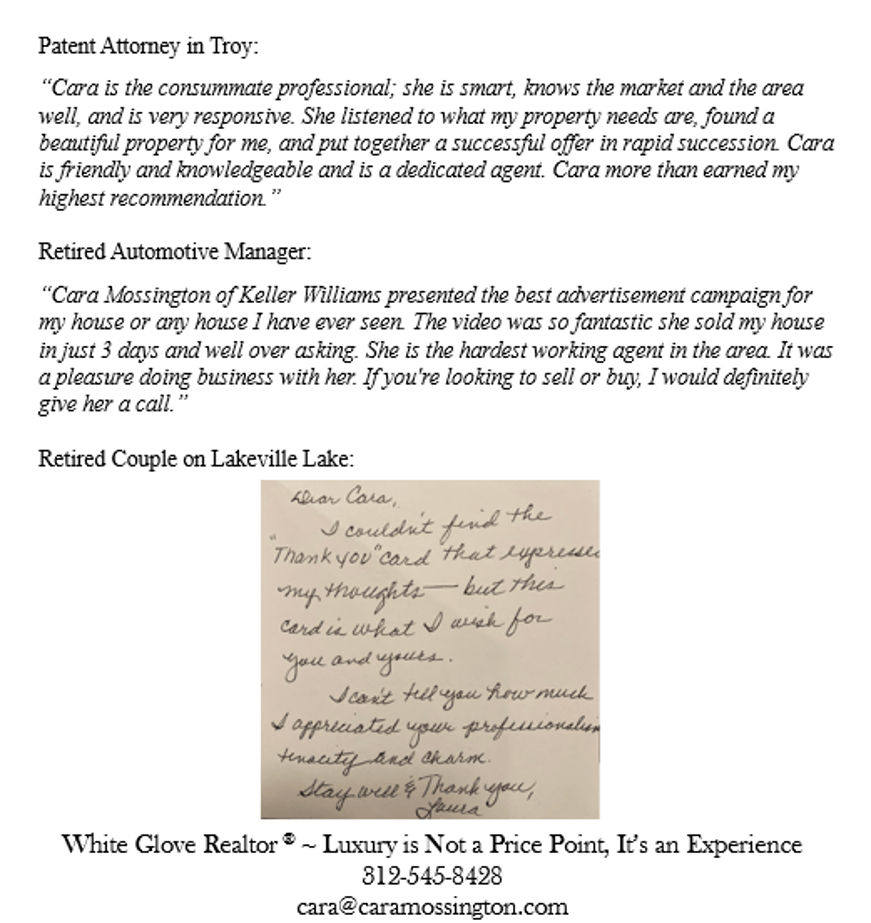 Patent Attorney in Troy:
“Cara is the consummate professional; she is smart, knows the market and the area
well, and is very responsive. She listened to what my property needs are, found a
beautiful property for me, and put together a successful offer in rapid succession. Cara
is friendly and knowledgeable and is a dedicated agent. Cara more than earned my
highest recommendation.”
Retired Automotive Manager:
“Cara Mossington of Keller Williams presented the best advertisement campaign for
my house or any house I have ever seen. The video was so fantastic she sold my house
in just 3 days and well over asking. She is the hardest working agent in the area. It was
a pleasure doing business with her. If you're looking to sell or buy, I would definitely
give her a call.”
Retired Couple on Lakeville Lake:
Dear Cara,
I couldn't find the
"Thank you" card that expresse
my thoughts — but this
card is what I wish for
you and yours.
I can't tell you how much
I appreciated your professionalism
tenacity and charm.
Stay well & Thank you,
Laura
White Glove Realtor® ~ Luxury is Not a Price Point, It’s an Experience
312-545-8428
cara@caramossington.com